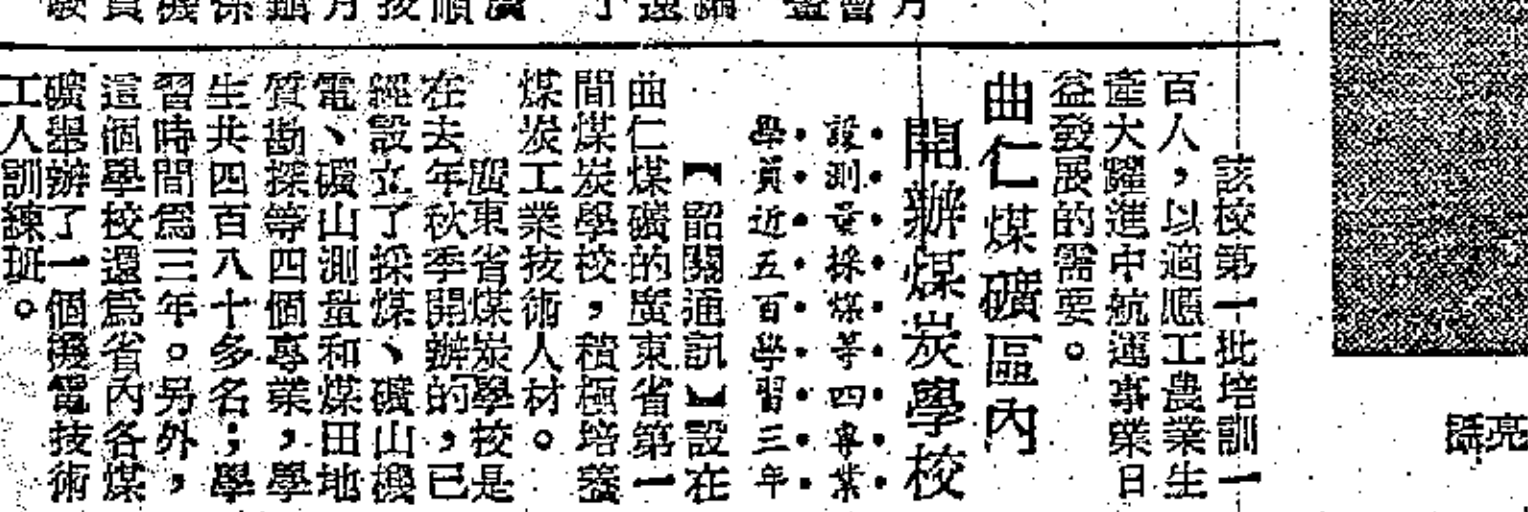 該校第一批培訓一
百人，以適應工農業生
產大躍進中航運事業日
益發展的需要。
曲仁煤礦區內
開辦煤炭學校
設測量採煤等四專業
學員近五百學習三年
【韶關通訊】設在
曲仁煤礦的廣東省第一
間煤炭學校，積極培養
煤炭工業技術人材。
廣東省煤炭學校是
在去年秋季開辦的，已
經設立了採煤、礦山機
電、礦山測量和煤田地
質勘探等四個專業，學
生共四百八十多名；學
習時間爲三年。另外，
這個學校還爲省內各煤
礦舉辦了一個機電技術
工人訓練班。